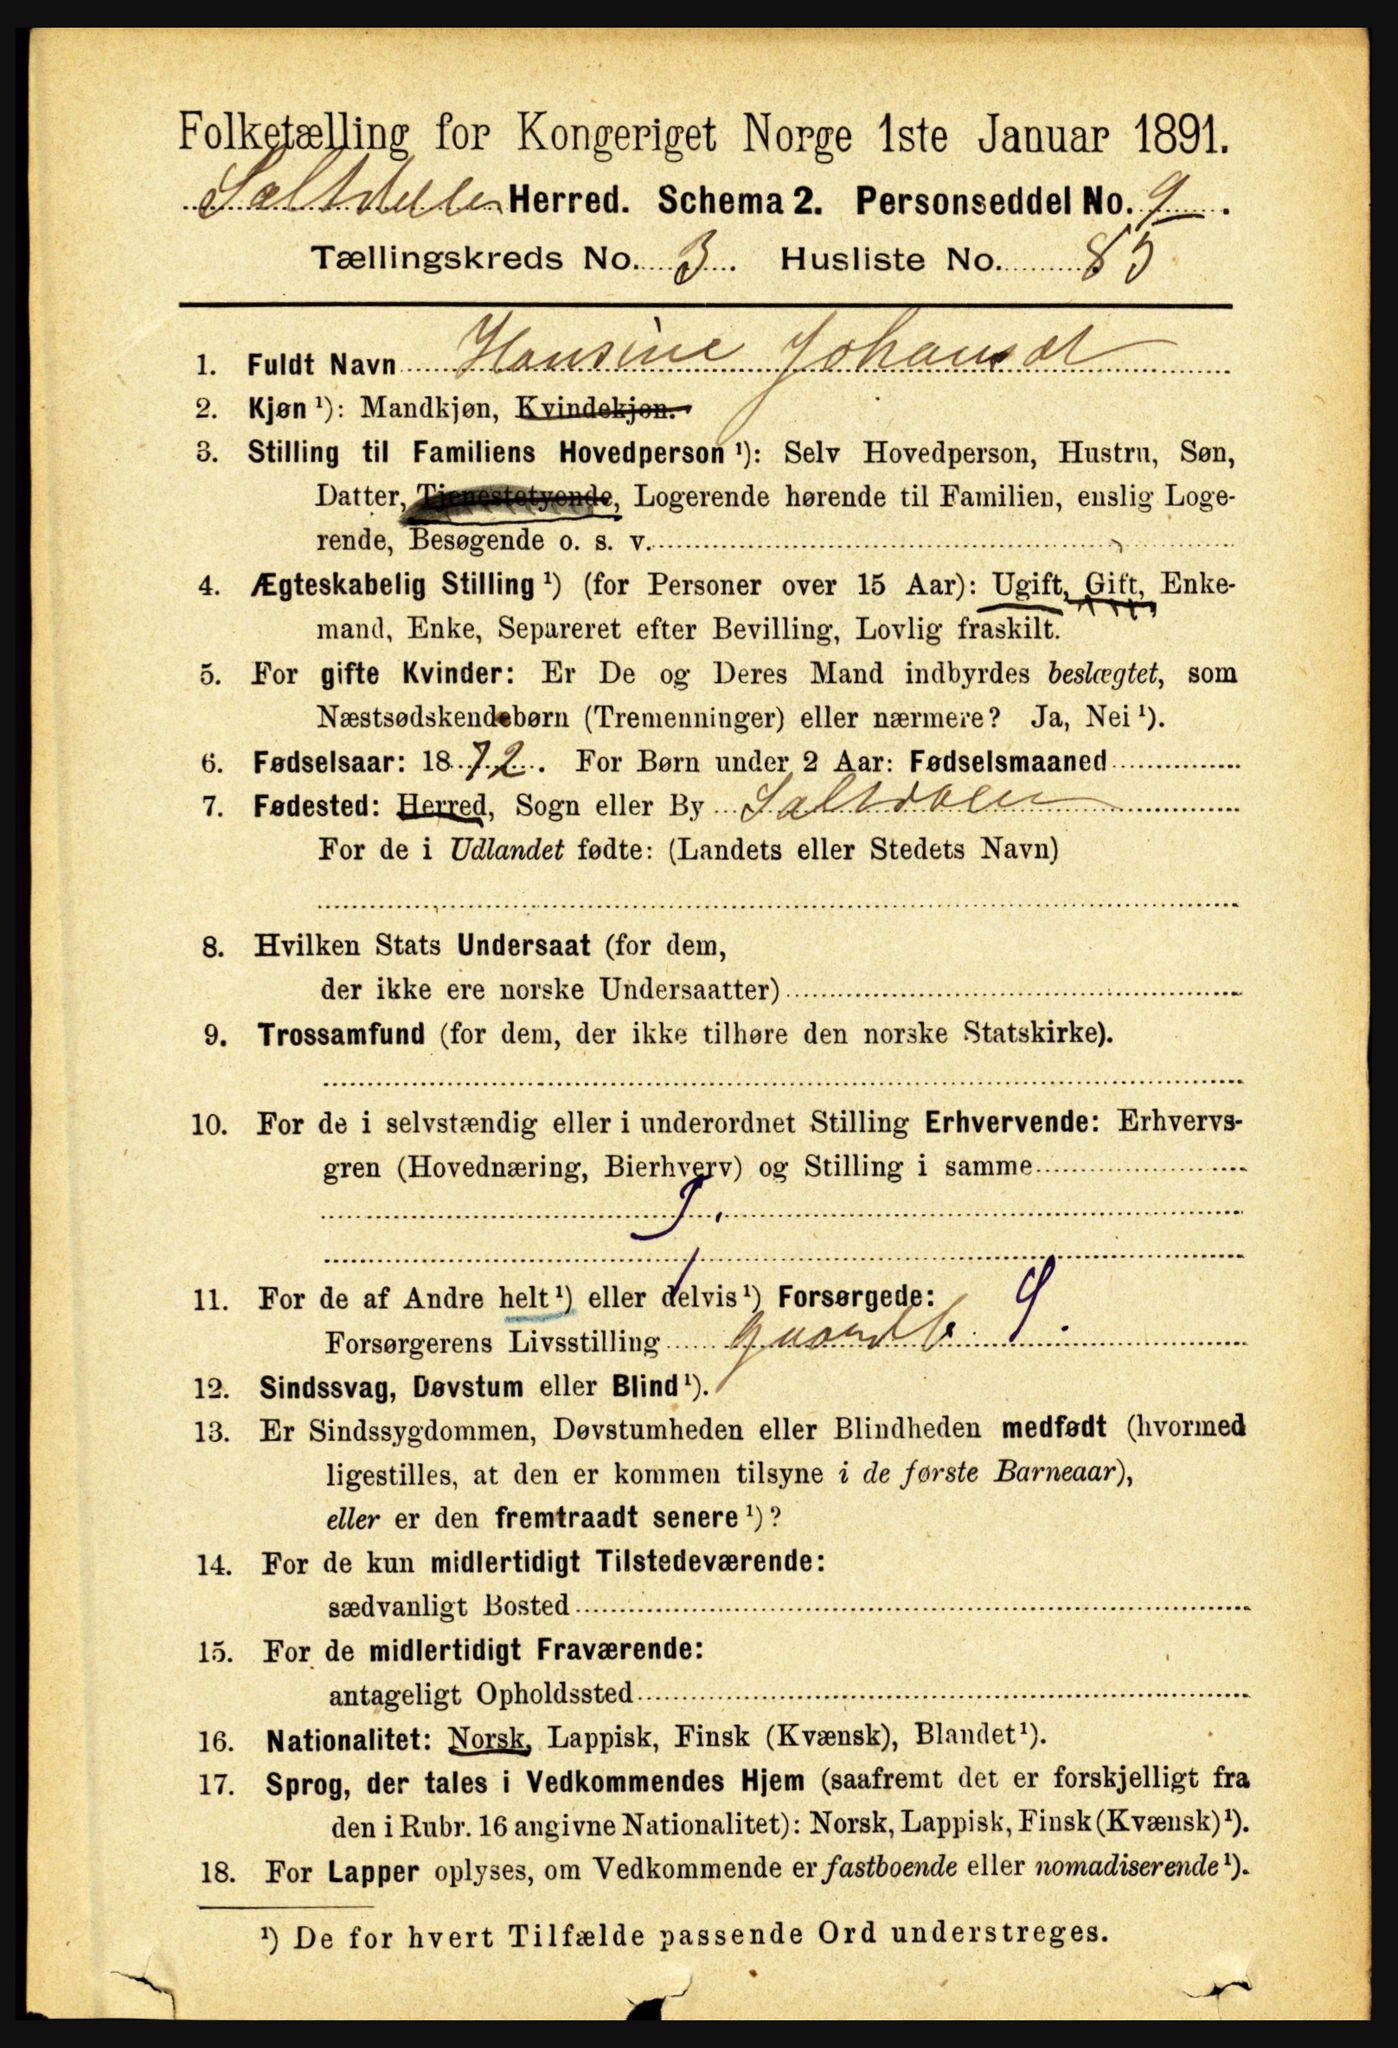 Folketælling for Kongeriget Norge 1ste Januar 1891.
Saltdalen Herred. Schema 2. Personseddel No. 9.
Tællingskreds No. 3. Husliste No. 85
1. Fuldt Navn Hansine Johansdt
2. Kjøn ¹): Mandkjøn, Kvindekjøn.
3. Stilling til Familiens Hovedperson ¹): Selv Hovedperson, Hustru, Søn,
Datter, Tjenestetyende, Logerende hørende til Familien, enslig Loge-
rende, Besøgende o. s. v.
4. Ægteskabelig Stilling ¹) (for Personer over 15 Aar): Ugift, Gift, Enke-
mand, Enke, Separeret efter Bevilling, Lovlig fraskilt.
5. For gifte Kvinder: Er De og Deres Mand indbyrdes beslægtet, som
Næstsødskendebørn (Tremenninger) eller nærmere? Ja, Nei ¹).
6. Fødselsaar: 1872. For Børn under 2 Aar: Fødselsmaaned
7. Fødested: Herred, Sogn eller By Saltdalen
For de i Udlandet fødte: (Landets eller Stedets Navn)
8. Hvilken Stats Undersaat (for dem,
der ikke ere norske Undersaatter)
9. Trossamfund (for dem, der ikke tilhøre den norske Statskirke).
10. For de i selvstændig eller i underordnet Stilling Erhvervende: Erhvervs-
gren (Hovednæring, Bierhverv) og Stilling i samme
11. For de af Andre helt ¹) eller delvis ¹) Forsørgede:
Forsørgerens Livsstilling gaardb.
12. Sindssvag, Døvstum eller Blind ¹).
13. Er Sindssygdommen, Døvstumheden eller Blindheden medfødt (hvormed
ligestilles, at den er kommen tilsyne i de første Barneaar),
eller er den fremtraadt senere ¹)?
14. For de kun midlertidigt Tilstedeværende:
sædvanligt Bosted
15. For de midlertidigt Fraværende:
antageligt Opholdssted
16. Nationalitet: Norsk, Lappisk, Finsk (Kvænsk), Blandet ¹).
17. Sprog, der tales i Vedkommendes Hjem (saafremt det er forskjelligt fra
den i Rubr. 16 angivne Nationalitet): Norsk, Lappisk, Finsk (Kvænsk) ¹).
18. For Lapper oplyses, om Vedkommende er fastboende eller nomadiserende ¹).
¹) De for hvert Tilfælde passende Ord understreges.